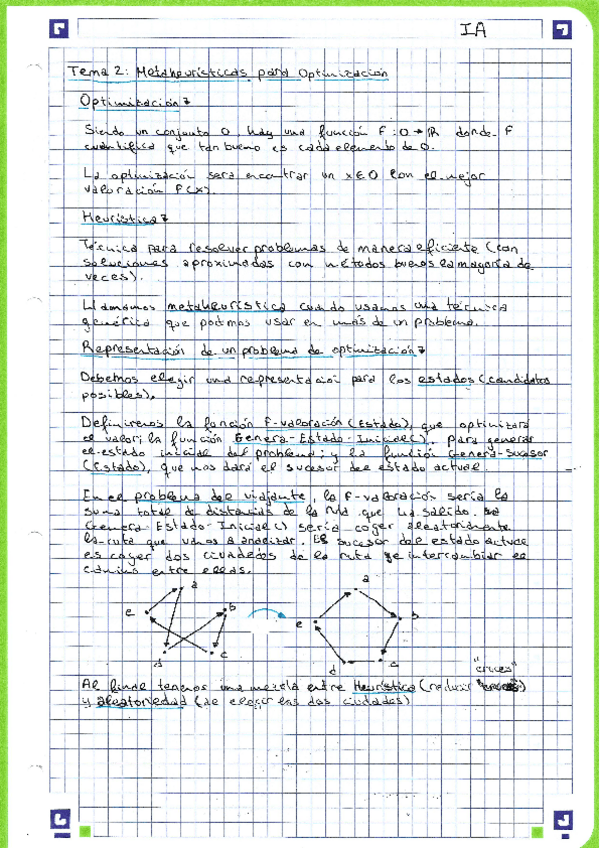 IA
Tema 2: Metaheurísticas para Optimización
Optimización
Siendo un conjunto O, hay una función F: O → ℝ donde F
cuantifica que tan bueno es cada elemento de O.
La optimización será encontrar un x∈O con el mejor
valoración F(x).
Heurística
Técnica para resolver problemas de manera eficiente (con
soluciones aproximadas con métodos buenos la mayoría de
veces).
Llamamos metaheurística cuando usamos una técnica
genérica que podemos usar en más de un problema.
Representación de un problema de optimización
Debemos elegir una representación para los estados (candidatos
posibles).
Definiremos la función F-valoración (Estado), que optimizará
el valor; la función Genera-Estado-Inicial(), para generar
el estado inicial del problema; y la función Genera-Sucesor
(Estado), que nos dará el sucesor del estado actual.
En el problema del viajante, la F-valoración sería la
suma total de distancias de la ruta que ha salido.
Genera Estado-Inicial() sería coger aleatoriamente
la ruta que vamos a analizar. El sucesor del estado actual
es coger dos ciudades de la ruta e intercambiar el
camino entre ellas.
a a
e b e b
d c d c
"cruces"
Al final tenemos una mezcla entre Heurística (reducir)
y aleatoriedad (de elegir las dos ciudades)